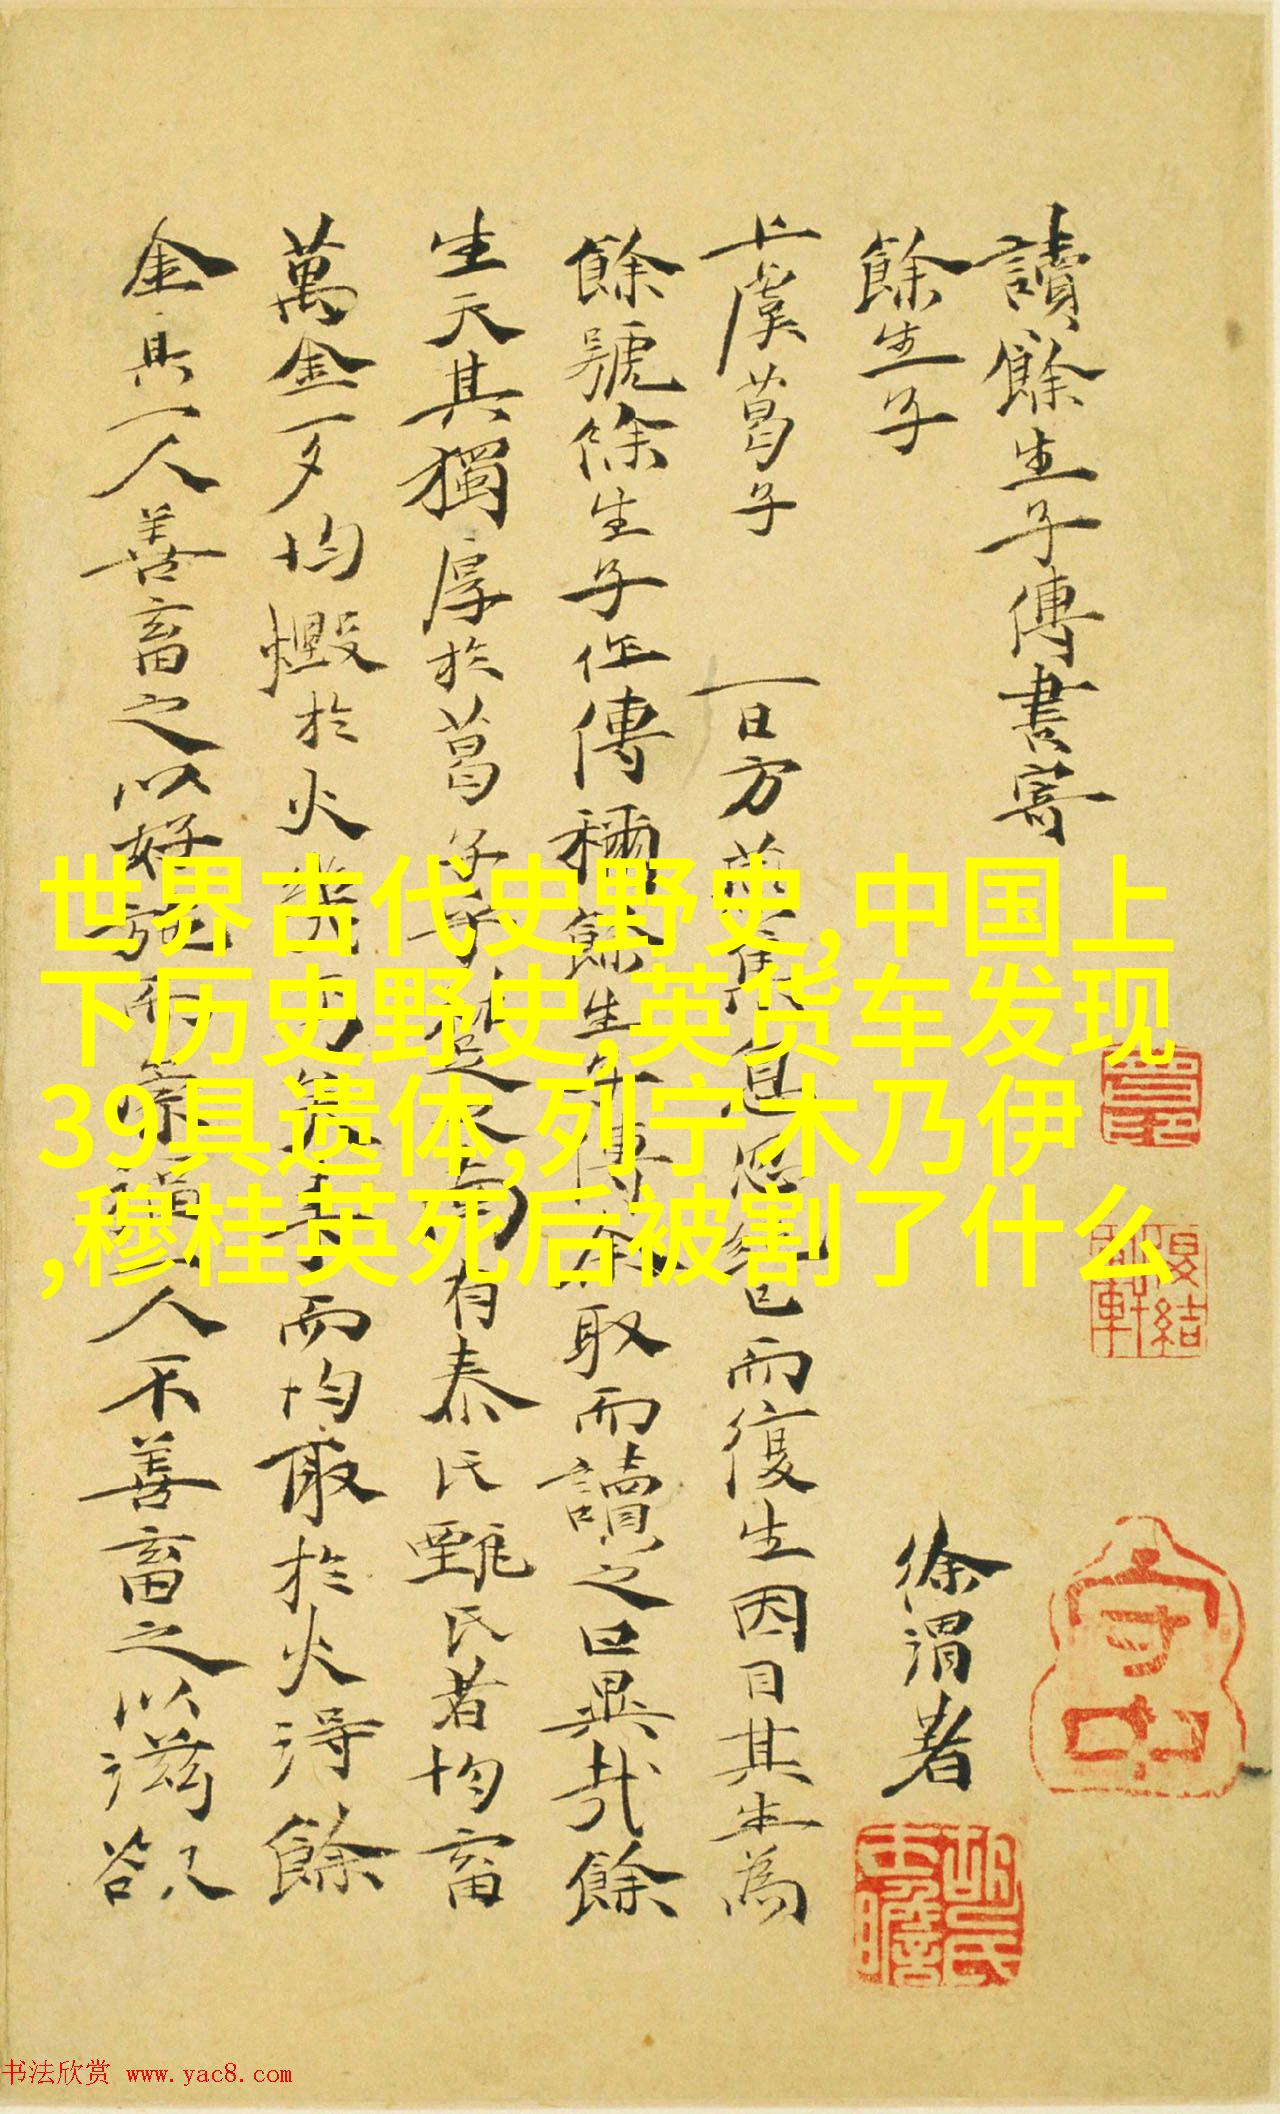 讀餘生子傳書寄
餘生子
徐渭著
上虞葛子
一日方
息
已而復生因目其生為
餘號餘生子作傳稱餘生子傳
取而讀之曰異哉餘
生天其獨厚於葛子乎楚之南有秦氏甄氏者均畜
萬金一夕均燬於火
而均取於火得餘
金其一人善畜之以好
一人不善畜之以滋欲
世界古代史野史,中国上
下历史野史,英货车发现
39具遗体,列宁木乃伊
,穆桂英死后被割了什么
守中
书法欣赏 www.yac8.com